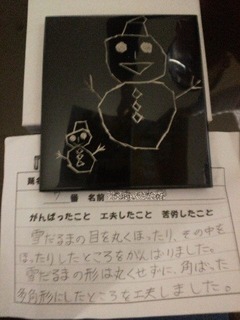 番 名前
がんばったこと 工夫したこと 苦労したこと
雪だるまの目を丸くほったり、その中を
ほったりしたところをがんばりました。
雪だるまの形は丸くせずに、角ばった
多角形にしたところを工夫しました。